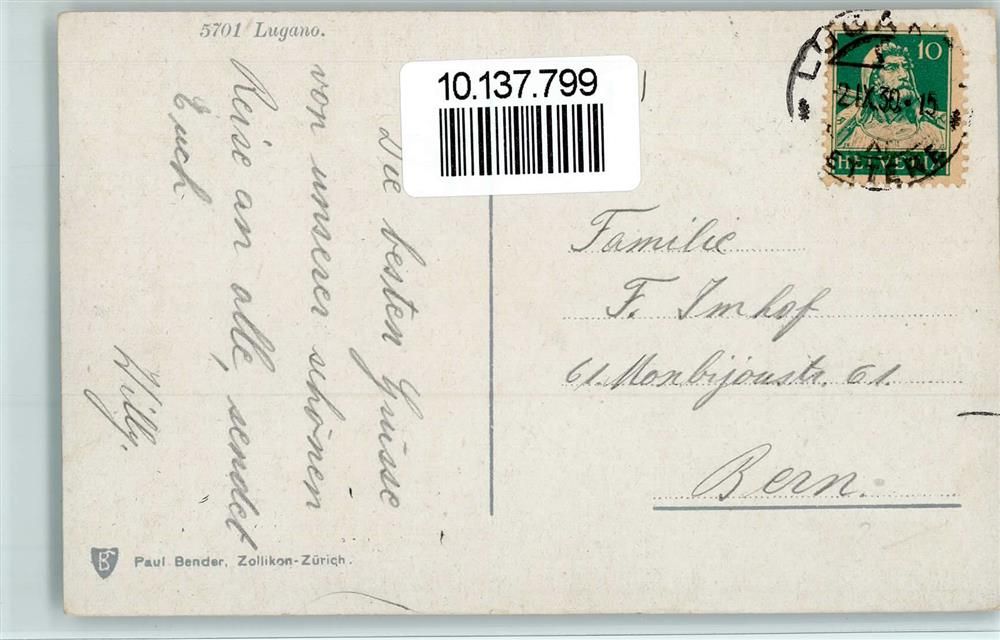 5701 Lugano.
10.137.799
10
LUGANO
-2.IX.30.-15
LETTERE
HELVETIA
Die besten Grüsse
von unserer schönen
Reise an alle, sendet
Euch
Willy.
Familie
F. Imhof
61. Monbijoustr. 61.
Bern.
Paul Bender, Zollikon-Zürich.